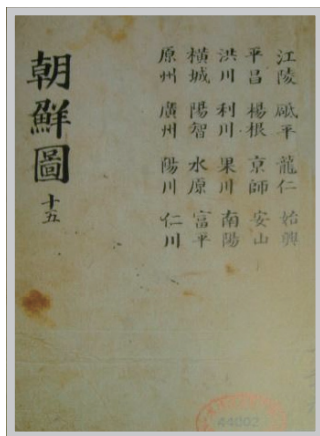 江陵 砥平 龍仁 始興
平昌 楊根 京師 安山
洪川 利川 果川 南陽
橫城 陽智 水原 富平
原州 廣州 陽川 仁川
朝鮮圖 十五
44002